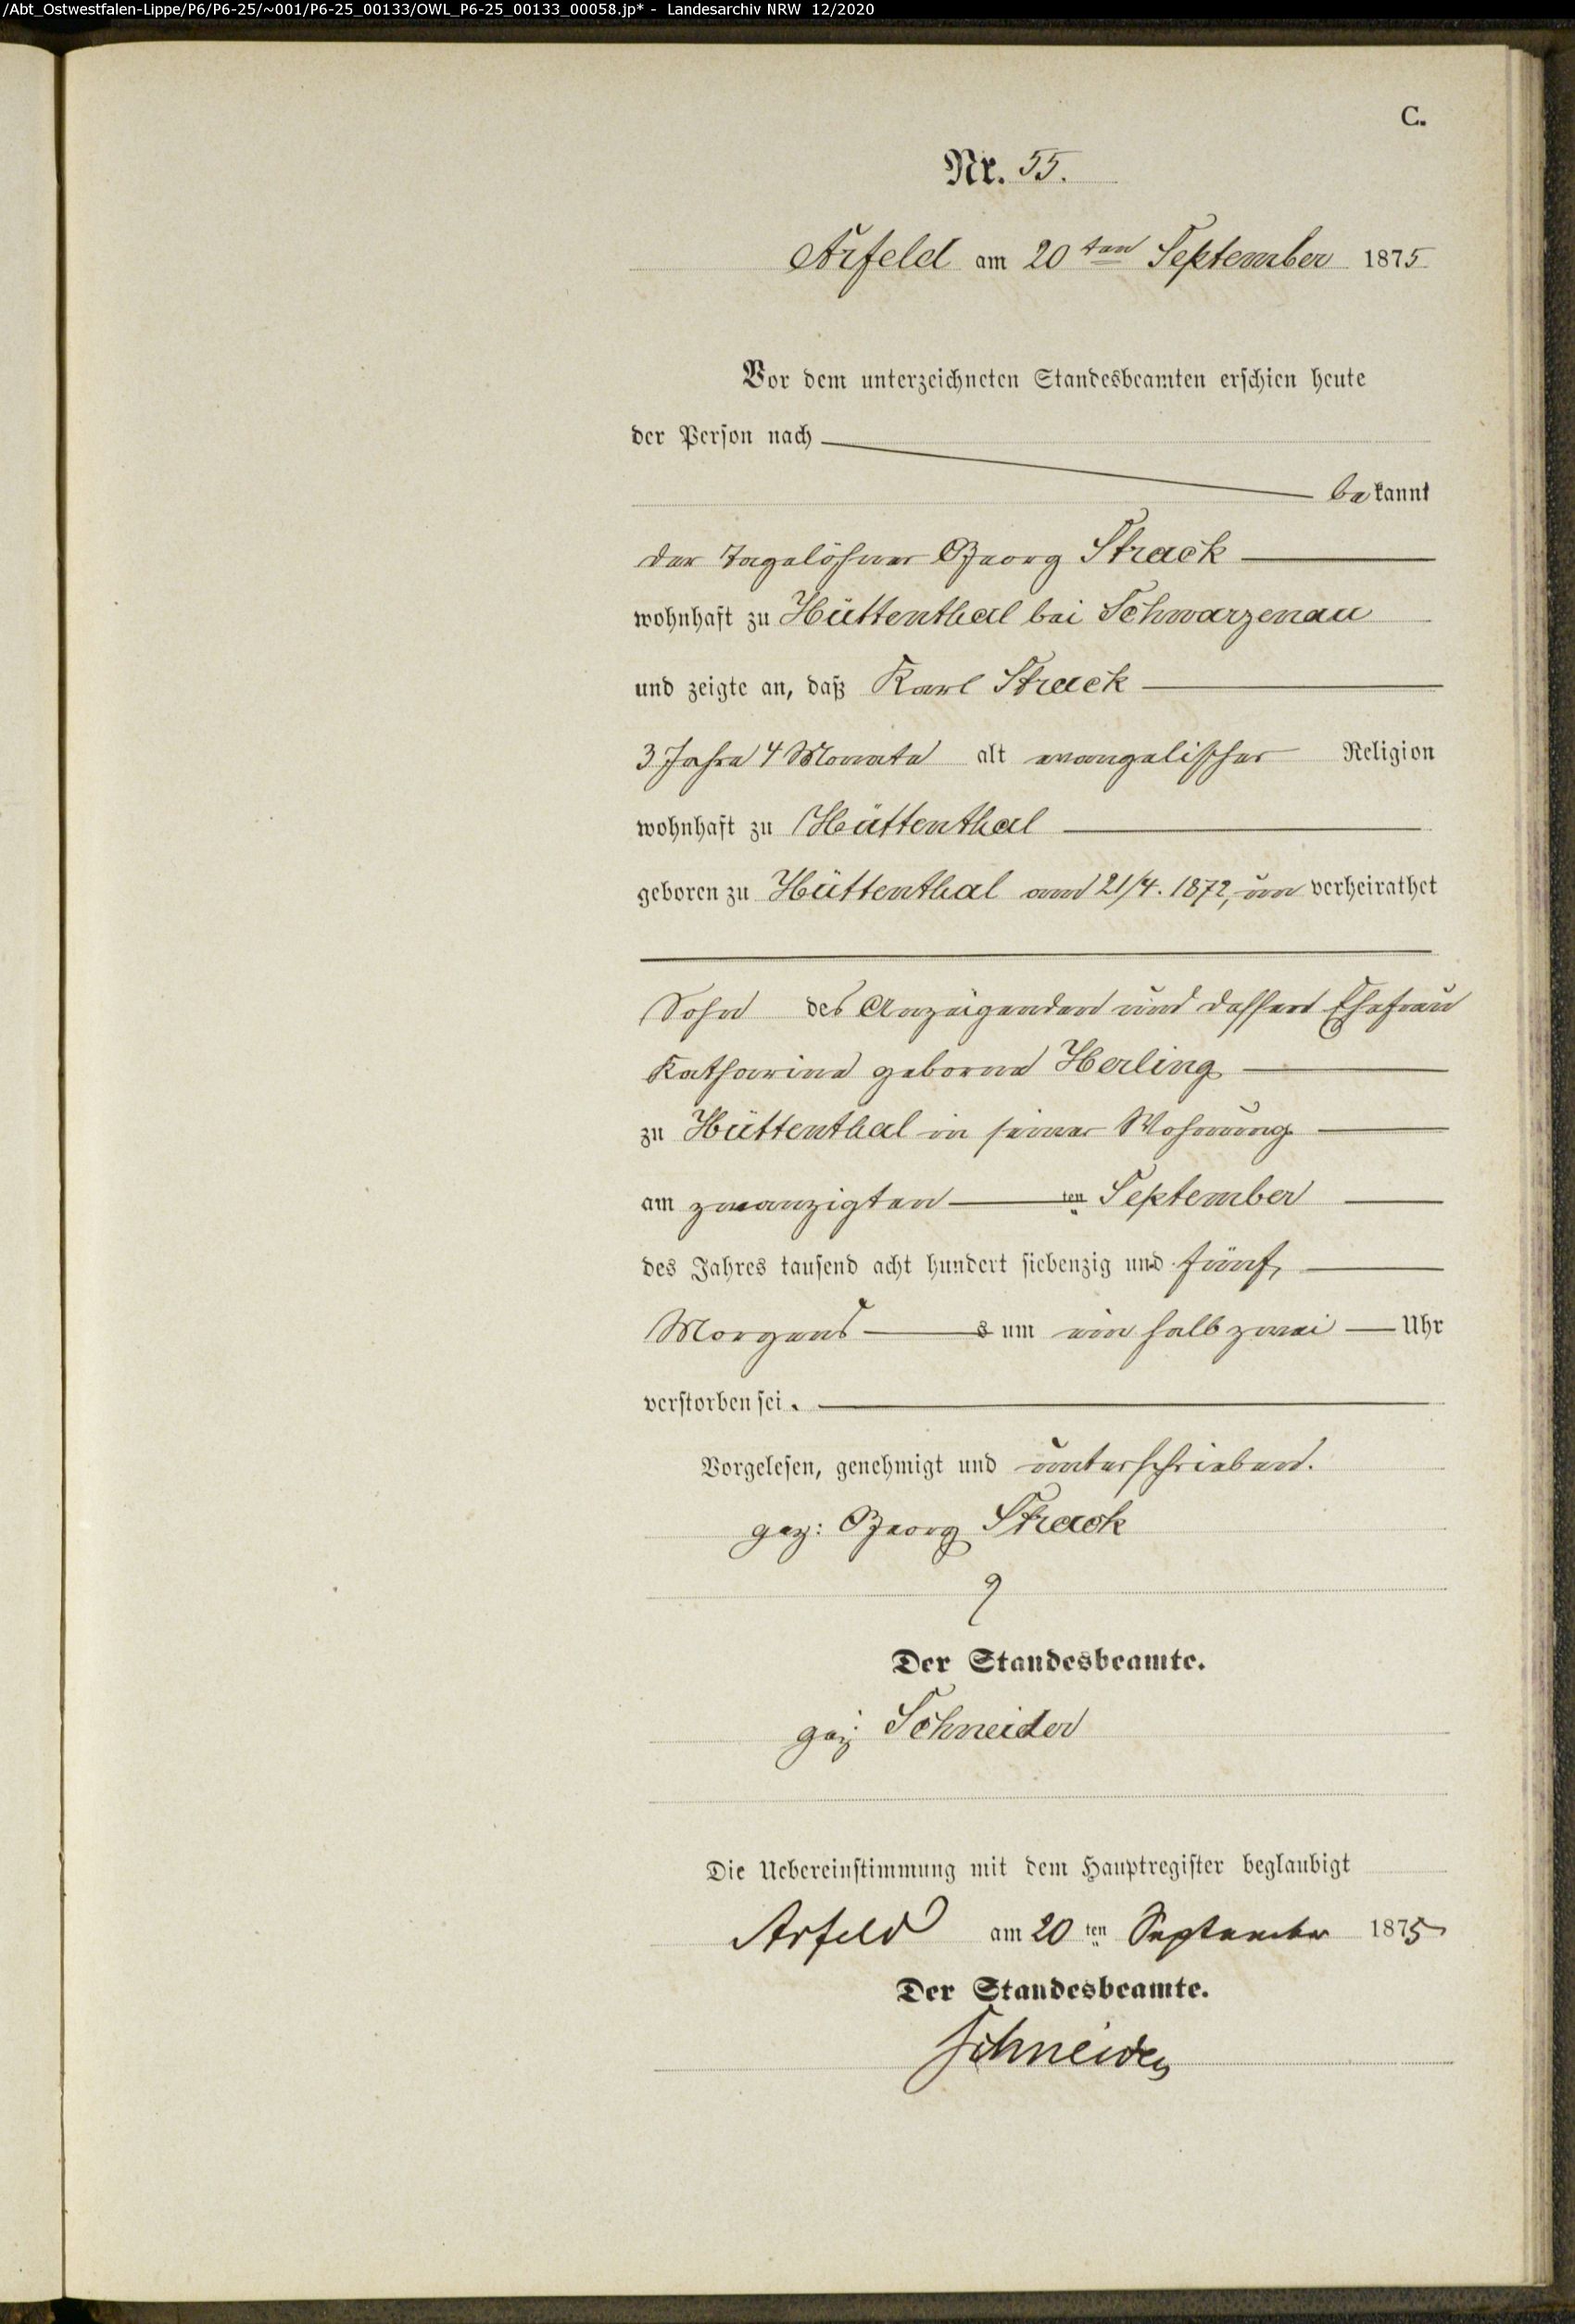 /Abt_Ostwestfalen-Lippe/P6/P6-25/~001/P6-25_00133/OWL_P6-25_00133_00058.jp* - Landesarchiv NRW 12/2020
C.
Nr. 55.
Arfeld am 20ten September 1875
Vor dem unterzeichneten Standesbeamten erschien heute
der Person nach
bekannt
der Tagelöhner Georg Strack
wohnhaft zu Hüttenthal bei Schwarzenau
und zeigte an, daß Karl Strack
3 Jahre 4 Monate alt evangelischer Religion
wohnhaft zu Hüttenthal
geboren zu Hüttenthal am 21/4. 1872, un verheirathet
Sohn des Anzeigenden und dessen Ehefrau
Katharina geborne Herling
zu Hüttenthal in seiner Wohnung
am zwanzigten ten September
des Jahres tausend acht hundert siebenzig und fünf,
Morgens s um ein halb zwei Uhr
verstorben sei.
Vorgelesen, genehmigt und unterschrieben.
gez: Georg Strack
Der Standesbeamte.
gez: Schneider
Die Uebereinstimmung mit dem Hauptregister beglaubigt
Arfeld am 20ten September 1875
Der Standesbeamte.
Schneider